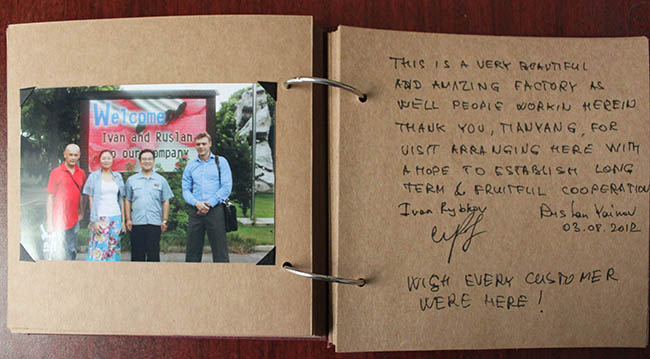 Welcome
Ivan and Ruslan
to our company
THIS IS A VERY BEAUTIFUL
AND AMIZING FACTORY AS
WELL PEOPLE WORKIN HEREIN
THANK YOU, TIANYANG, FOR
VISIT ARRANGING HERE WITH
A HOPE TO ESTABLISH LONG
TERM & FRUITFUL COOPERATION
Ivan Rybkov Ruslan
03.08.2012
WISH EVERY CUSTOMER
WERE HERE!